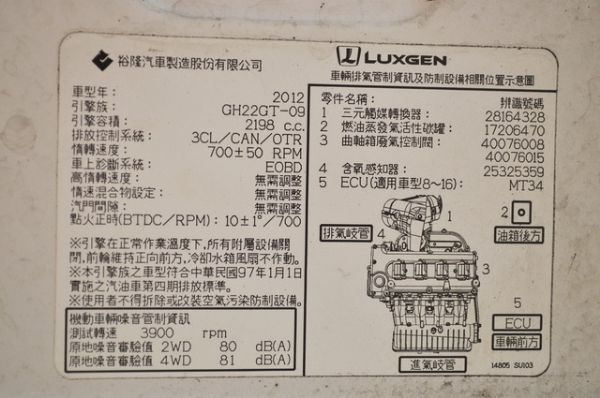 裕隆汽車製造股份有限公司
車型年: 2012
引擎族: GH22GT-09
引擎容積: 2198 c.c.
排放控制系統: 3CL/CAN/OTR
惰轉速度: 700±50 RPM
車上診斷系統: EOBD
高惰轉速度: 無需調整
惰速混合物設定: 無需調整
汽門間隙: 無需調整
點火正時(BTDC/RPM): 10±1°/700
※引擎在正常作業溫度下,所有附屬設備關
閉,前輪維持正向前方,冷卻水箱風扇不作動。
※本引擎族之車型符合中華民國97年1月1日
實施之汽油車第四期排放標準。
※使用者不得拆除或改裝空氣污染防制設備。
機動車輛噪音管制資訊
測試轉速 3900 rpm
原地噪音審驗值 2WD 80 dB(A)
原地噪音審驗值 4WD 81 dB(A)
LUXGEN
車輛排氣管制資訊及防制設備相關位置示意圖
零件名稱: 辨識號碼
1 三元觸媒轉換器: 28164328
2 燃油蒸發氣活性碳罐: 17206470
3 曲軸箱廢氣控制閥: 40076008
40076015
4 含氧感知器: 25325359
5 ECU(適用車型8~16): MT34
1
2
排氣岐管 4
油箱後方
3
5
ECU
車輛前方
進氣岐管
14805 SU103